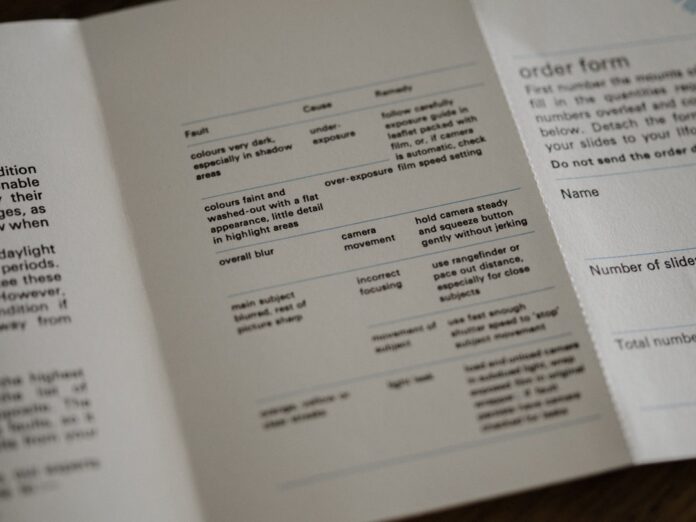 dition
nable
their
ges, as
w when
daylight
periods.
ee these
However,
ndition if
way from
he highest
the list of
opposite. The
faults, as a
from your
our experts
Fault
Cause
Remedy
colours very dark,
especially in shadow
areas
under-
exposure
follow carefully
exposure guide in
leaflet packed with
film, or, if camera
is automatic, check
film speed setting
colours faint and
washed-out with a flat
appearance, little detail
in highlight areas
over-exposure
overall blur
camera
movement
hold camera steady
and squeeze button
gently without jerking
main subject
blurred, rest of
picture sharp
incorrect
focusing
use rangefinder or
pace out distance,
especially for close
subjects
movement of
subject
use fast enough
shutter speed to 'stop'
subject movement
orange, yellow or
streaks
light leak
load and unload camera
in subdued light, wrap
exposed film in original
wrapper; if fault
persists have camera
checked for leaks
order form
First number the mounts of
fill in the quantities req
numbers overleaf and co
below. Detach the form
your slides to your life
Do not send the order d
Name
Number of slides
Total numbe